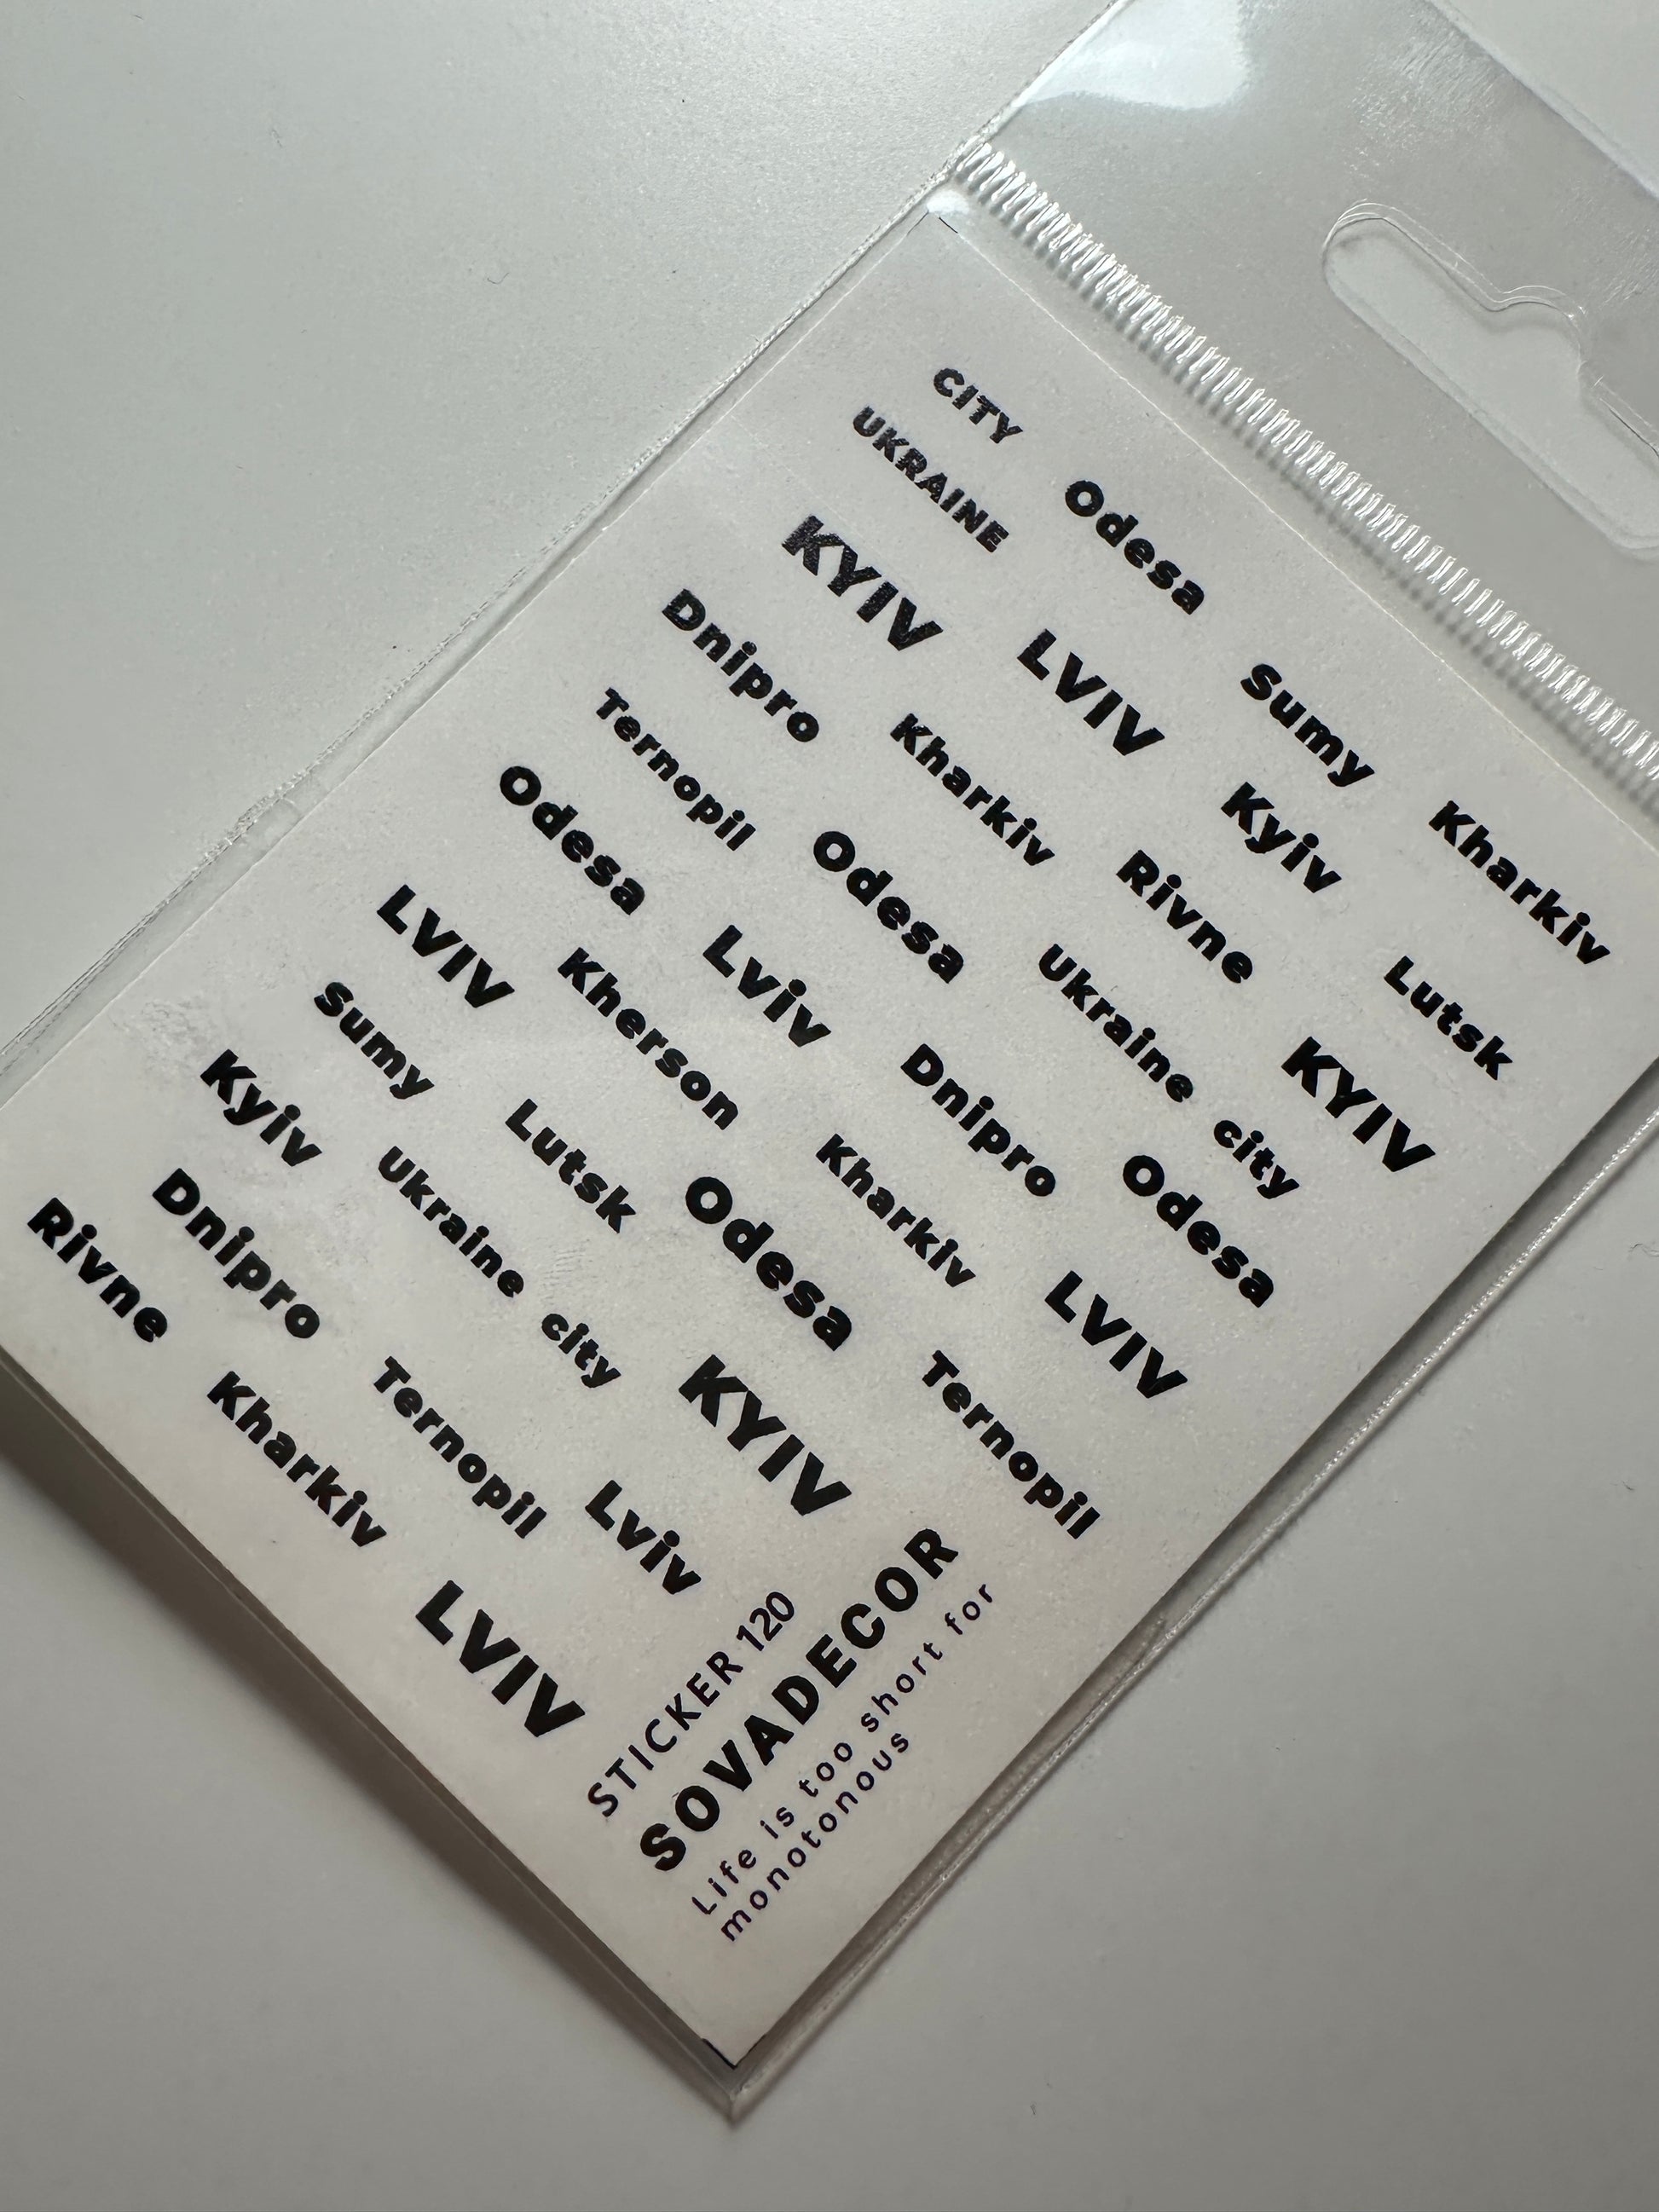 CITY
UKRAINE
Odesa
KYIV
LVIV
Sumy
Dnipro
Kharkiv
Kyiv
Kharkiv
Ternopil
Odesa
Rivne
Lutsk
Odesa
Lviv
Ukraine city
KYIV
LVIV
Kherson
Dnipro
Odesa
Sumy
Lutsk
Kharkiv
LVIV
Kyiv
Ukraine city
Odesa
Ternopil
Dnipro
Ternopil
KYIV
Rivne
Kharkiv
Lviv
LVIV
STICKER 120
SOVADECOR
Life is too short for
monotonous